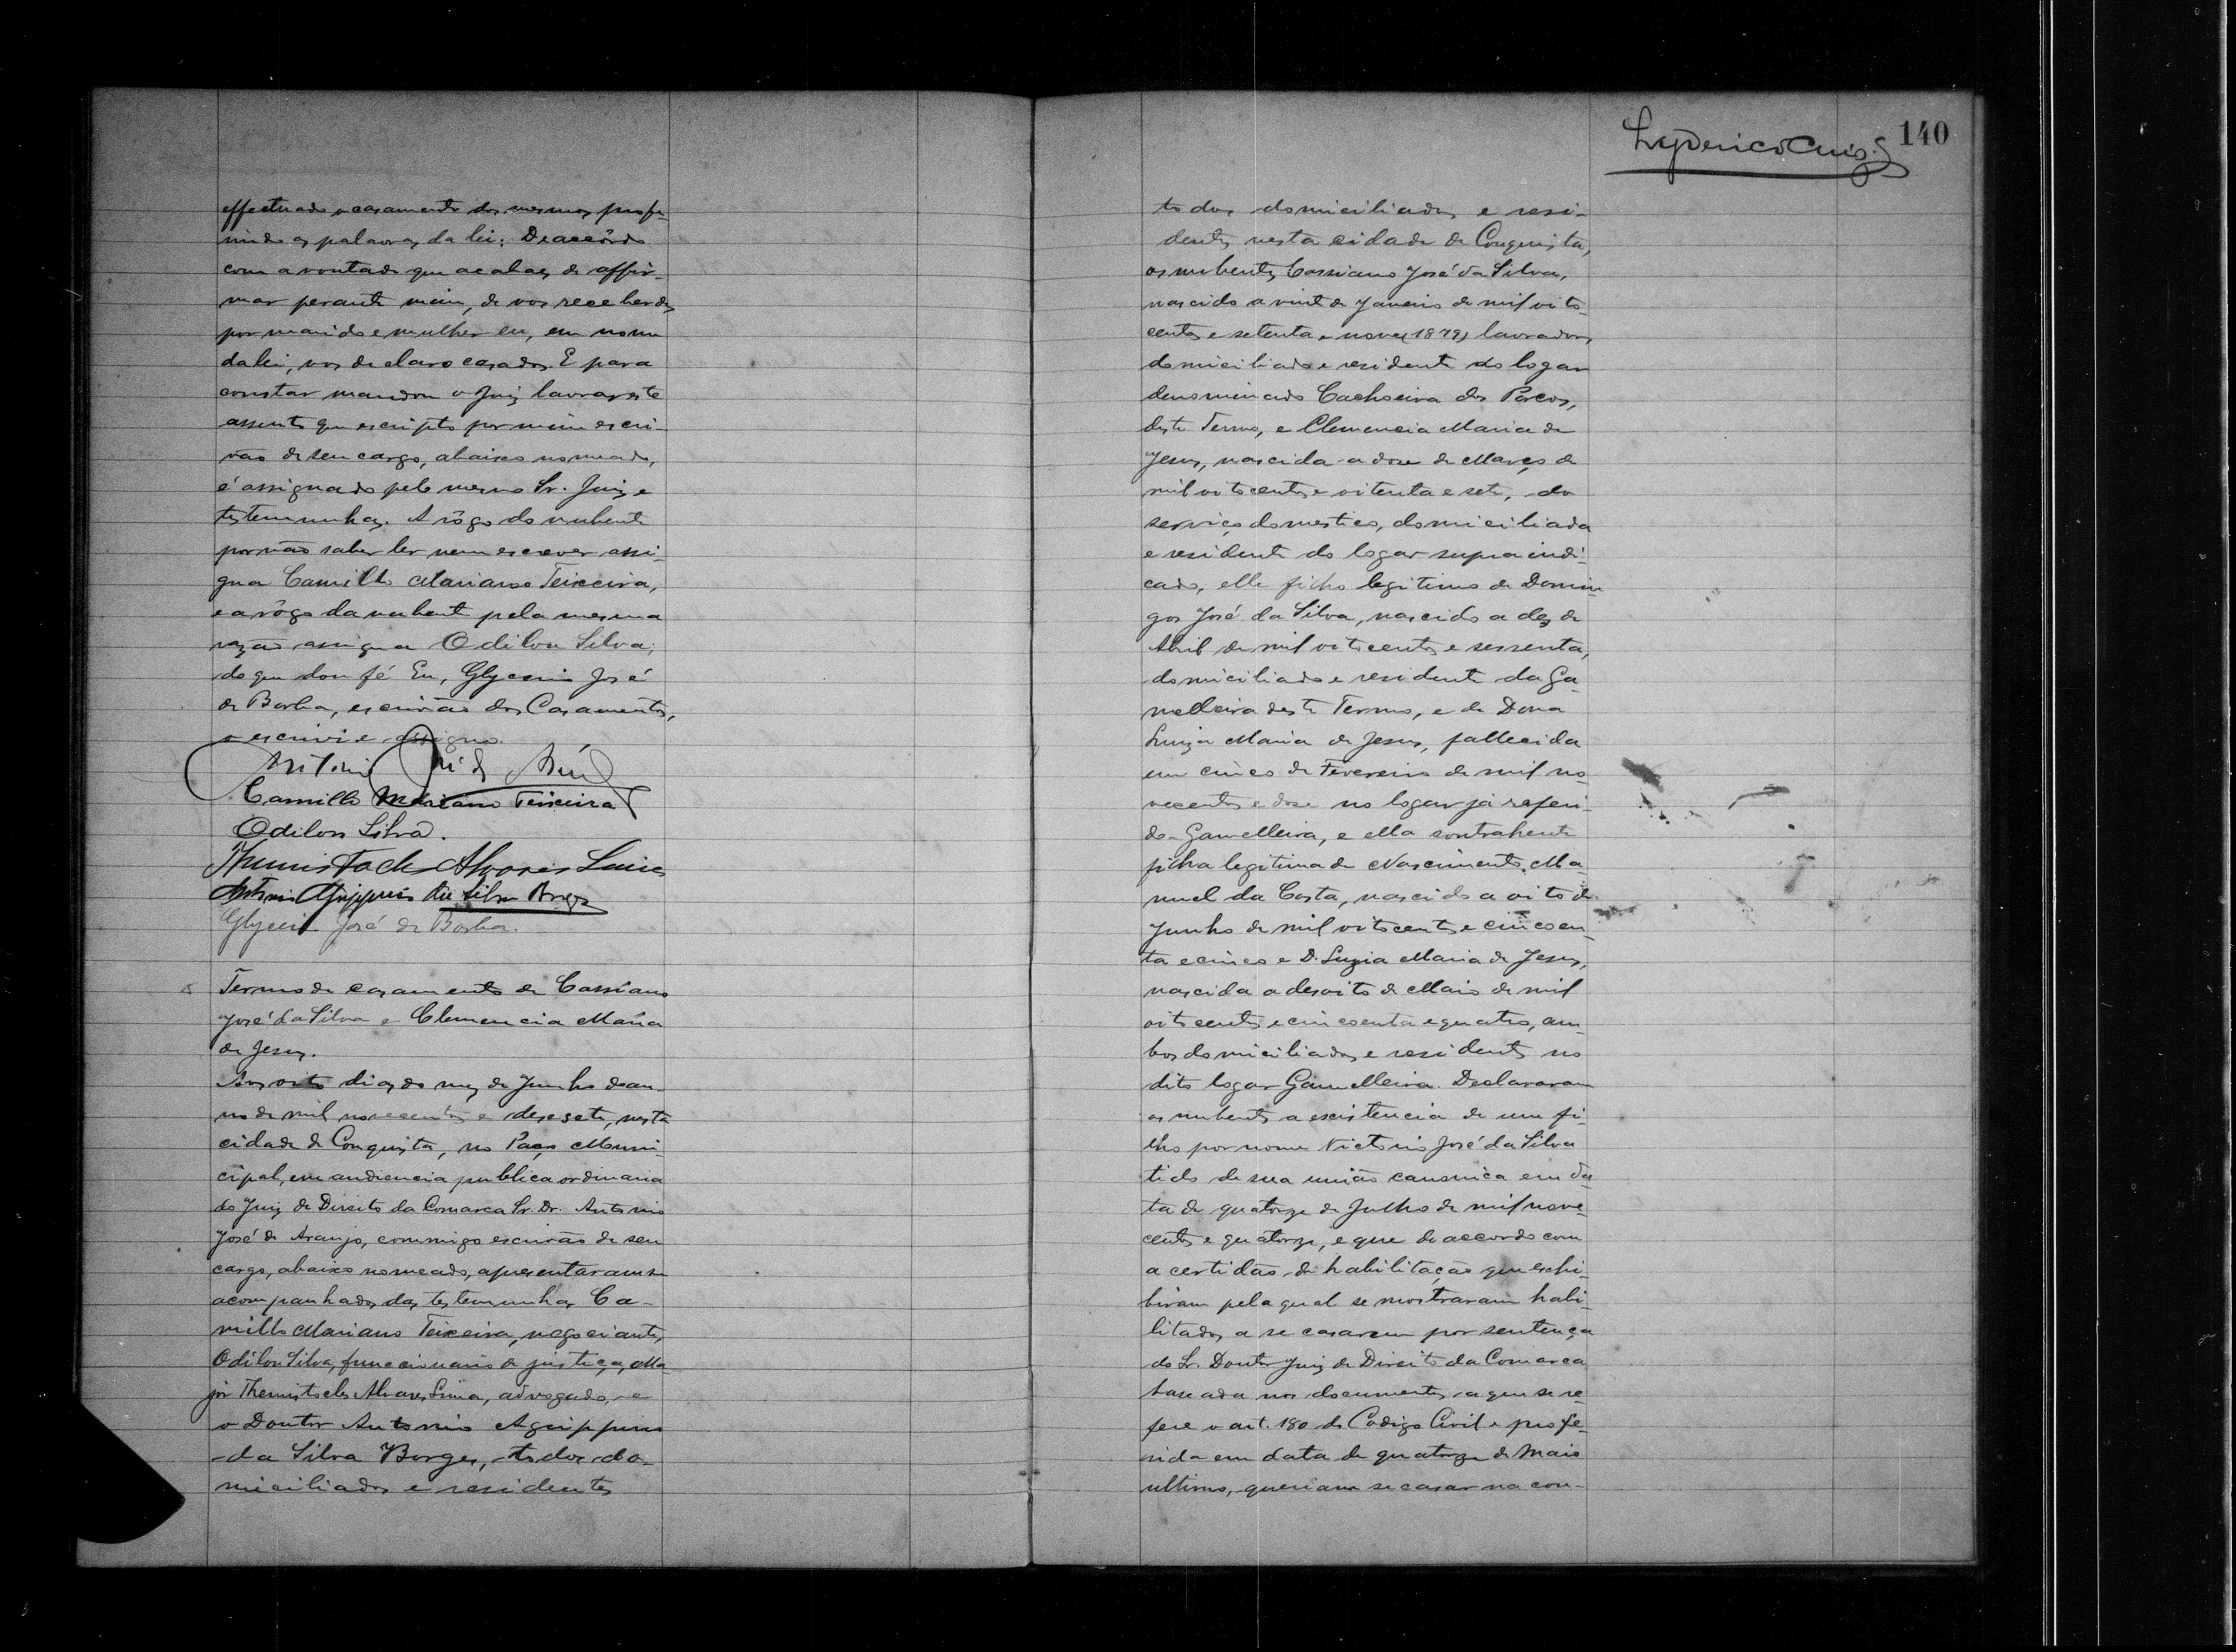 effectuado o casamento dos mesmos profe-
rindo as palavras da lei: De accôrdo
com a vontade que acabaes de affir-
mar perante mim, de vos receberdes
por marido e mulher eu, em nome
da lei, vos declaro casados. E para
constar mandou o Juiz lavrar este
assento que escripto por mim escri-
vão de seu cargo, abaixo nomeado,
é assignado pelo mesmo Sr. Juiz e
testemunhas. A rôgo do nubente
por não saber ler nem escrever assi-
gna Camillo Mariano Teixeira,
e a rôgo da nubente pela mesma
razão assigna Odilon Silva;
do que dou fé Eu, Glycerio José
de Borba, escrivão dos Casamentos,
o escrivi e assigno.
Antonio José de
Camillo Mariano Teixeira
Odilon Silva.
Themistocles Alvares Lima
Antonio Agrippino da Silva Borges
Glycerio José de Borba.
Termo de casamento de Cassiano
José da Silva e Clemencia Maria
de Jesus.
Aos oito dias do mez de Junho do an-
no de mil novecentos e desesete, nesta
cidade de Conquista, no Paço Muni-
cipal, em audiencia publica ordinaria
do Juiz de Direito da Comarca Sr. Dr. Antonio
José de Araujo, commigo escrivão de seu
cargo, abaixo nomeado, apresentaram se
acompanhados das testemunhas Ca-
millo Mariano Teixeira, negociante,
Odilon Silva, funccionario de justiça, Ma-
jor Themistocles Alvares Lima, advogado, e
o Doutor Antonio Agrippino
da Silva Borges, todos do-
miciliados e residentes
140
todos domiciliados e resi-
dentes nesta cidade de Conquista,
os nubentes Cassiano José da Silva,
nascido a vinte de Janeiro de mil oito
centos e setenta e nove (1879) lavrador,
domiciliado e residente do logar
denominado Cachoeira dos Porcos,
deste Termo, e Clemencia Maria de
Jesus, nascida a doze de Março de
mil oitocentos e oitenta e sete, do
serviço domestico, domiciliada
e residente do logar supra indi-
cado, elle filho legitimo de Domin
gos José da Silva, nascido a dez de
Abril de mil oitocentos e sessenta,
domiciliado e residente da Ga-
melleira deste Termo, e de Dona
Luiza Maria de Jesus, fallecida
em cinco de Fevereiro de mil no-
vecentos e doze no logar já referi-
do Gamelleira, e ella contrahente
filha legitima de Nascimento Ma-
nuel da Costa, nascido a oito de
Junho de mil oitocentos e cincoen-
ta e cinco e D. Luzia Maria de Jesus,
nascida a desoito de Maio de mil
oitocentos e cincoenta e quatro, am-
bos domiciliados e residentes no
dito logar Gamelleira. Declararam
os nubentes a existencia de um fi-
lho por nome Victorio José da Silva
tido de sua união canonica em da-
ta de quatorze de Julho de mil nove-
centos e quatorze, e que de accordo com
a certidão de habilitação que exhi-
biram pela qual se mostraram habi-
litados a se casarem por sentença
do Sr. Doutor Juiz de Direito da Comarca
baseada nos documentos a que se re-
fere o art. 180 do Codigo Civil e profe-
rida em data de quatorze de Maio
ultimo, queriam se casar na con-